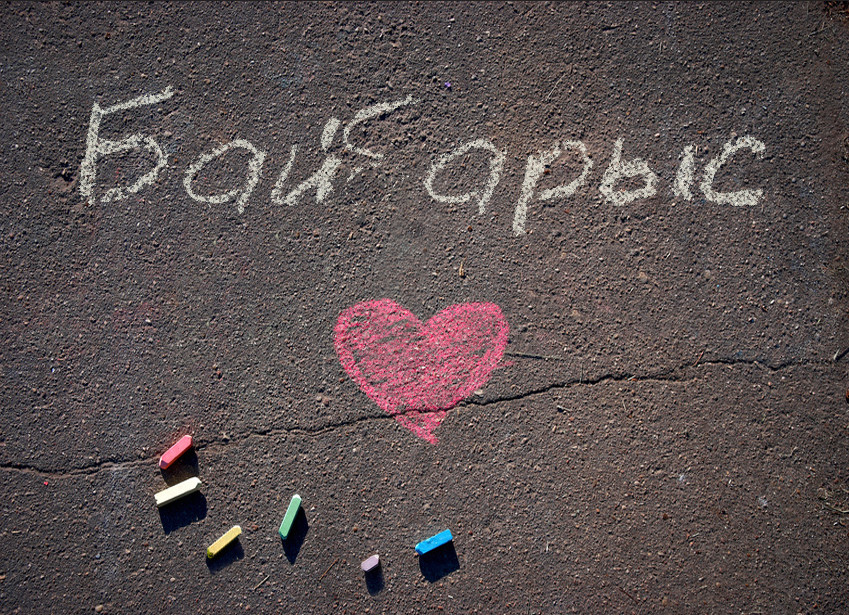 Байарыс